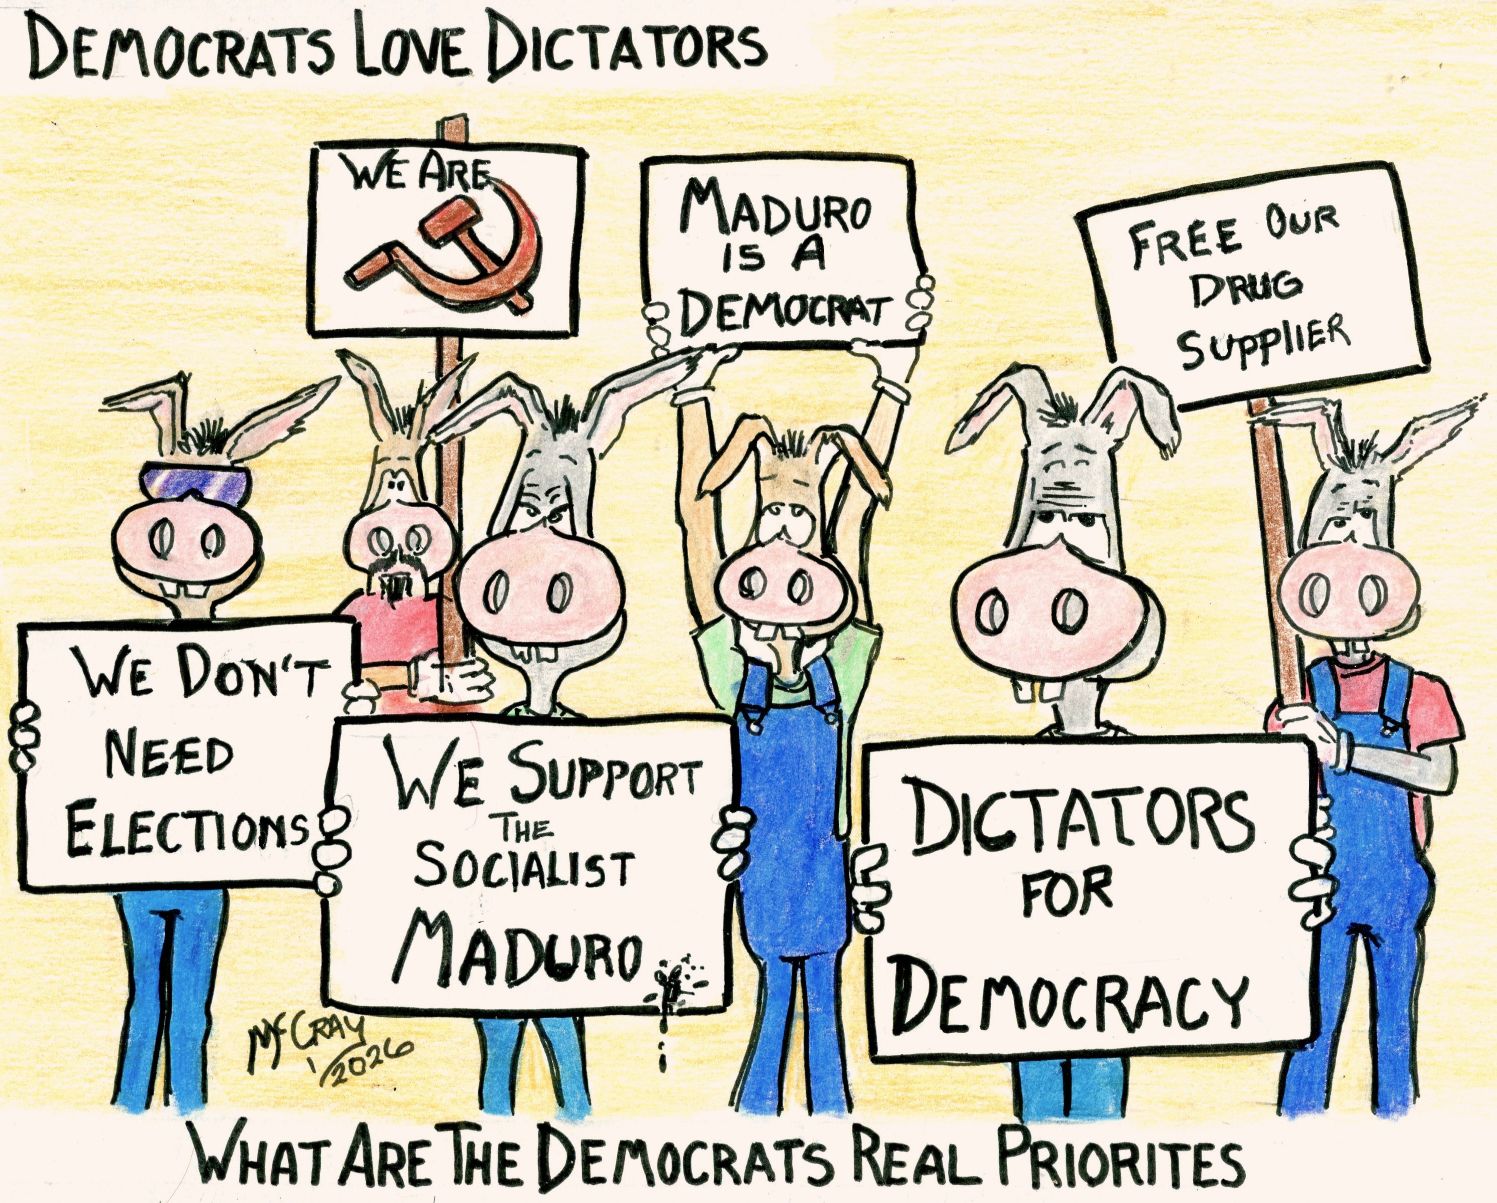 DEMOCRATS LOVE DICTATORS
WE ARE
MADURO
IS A
DEMOCRAT
FREE OUR
DRUG
SUPPLIER
WE DON'T
NEED
ELECTIONS
WE SUPPORT
THE
SOCIALIST
MADURO
DICTATORS
FOR
DEMOCRACY
MCCRAY
1/2026
WHAT ARE THE DEMOCRATS REAL PRIORITES